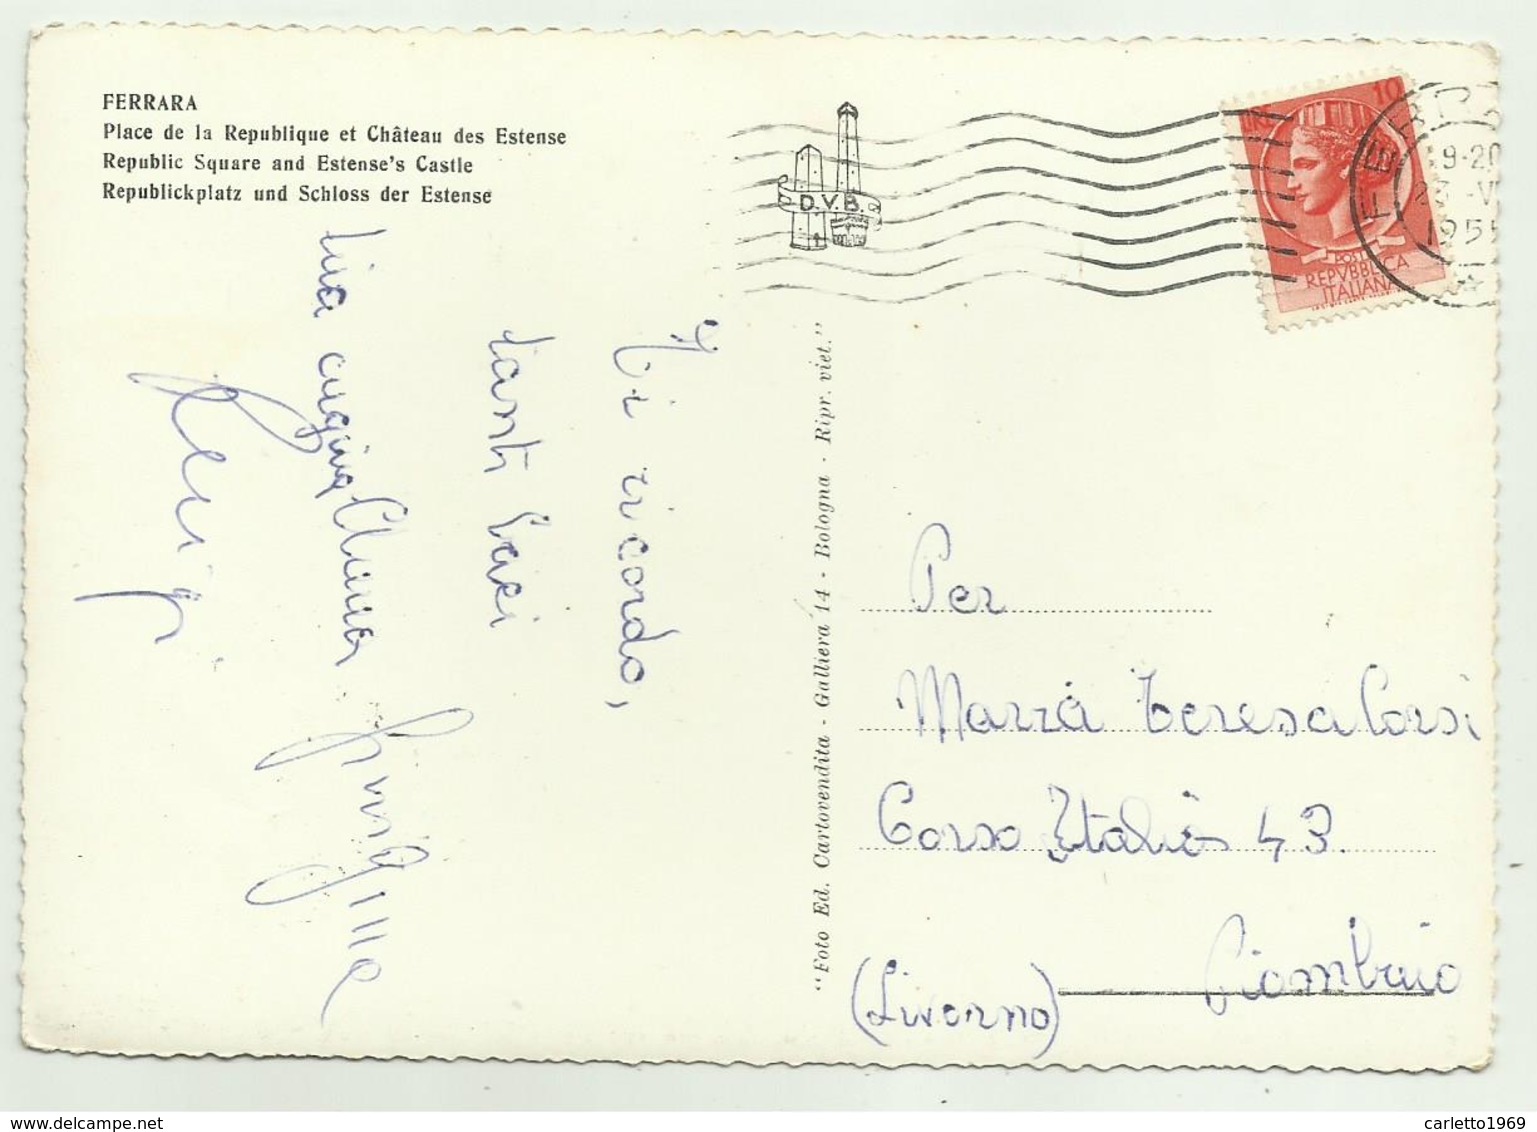 FERRARA
Place de la Republique et Château des Estense
Republic Square and Estense's Castle
Republickplatz und Schloss der Estense
D.V.B.
10
POSTE
REPVBBLICA
ITALIANA
FERRARA
19-20
195
Ti ricordo,
tanti baci
tua cugina
Luigi
"Foto Ed. Cartovendita - Galliera 14 - Bologna - Ripr. viet."
Per
Maria Teresa Corsi
Corso Italia 43.
Piombino
(Livorno)
carletto1969